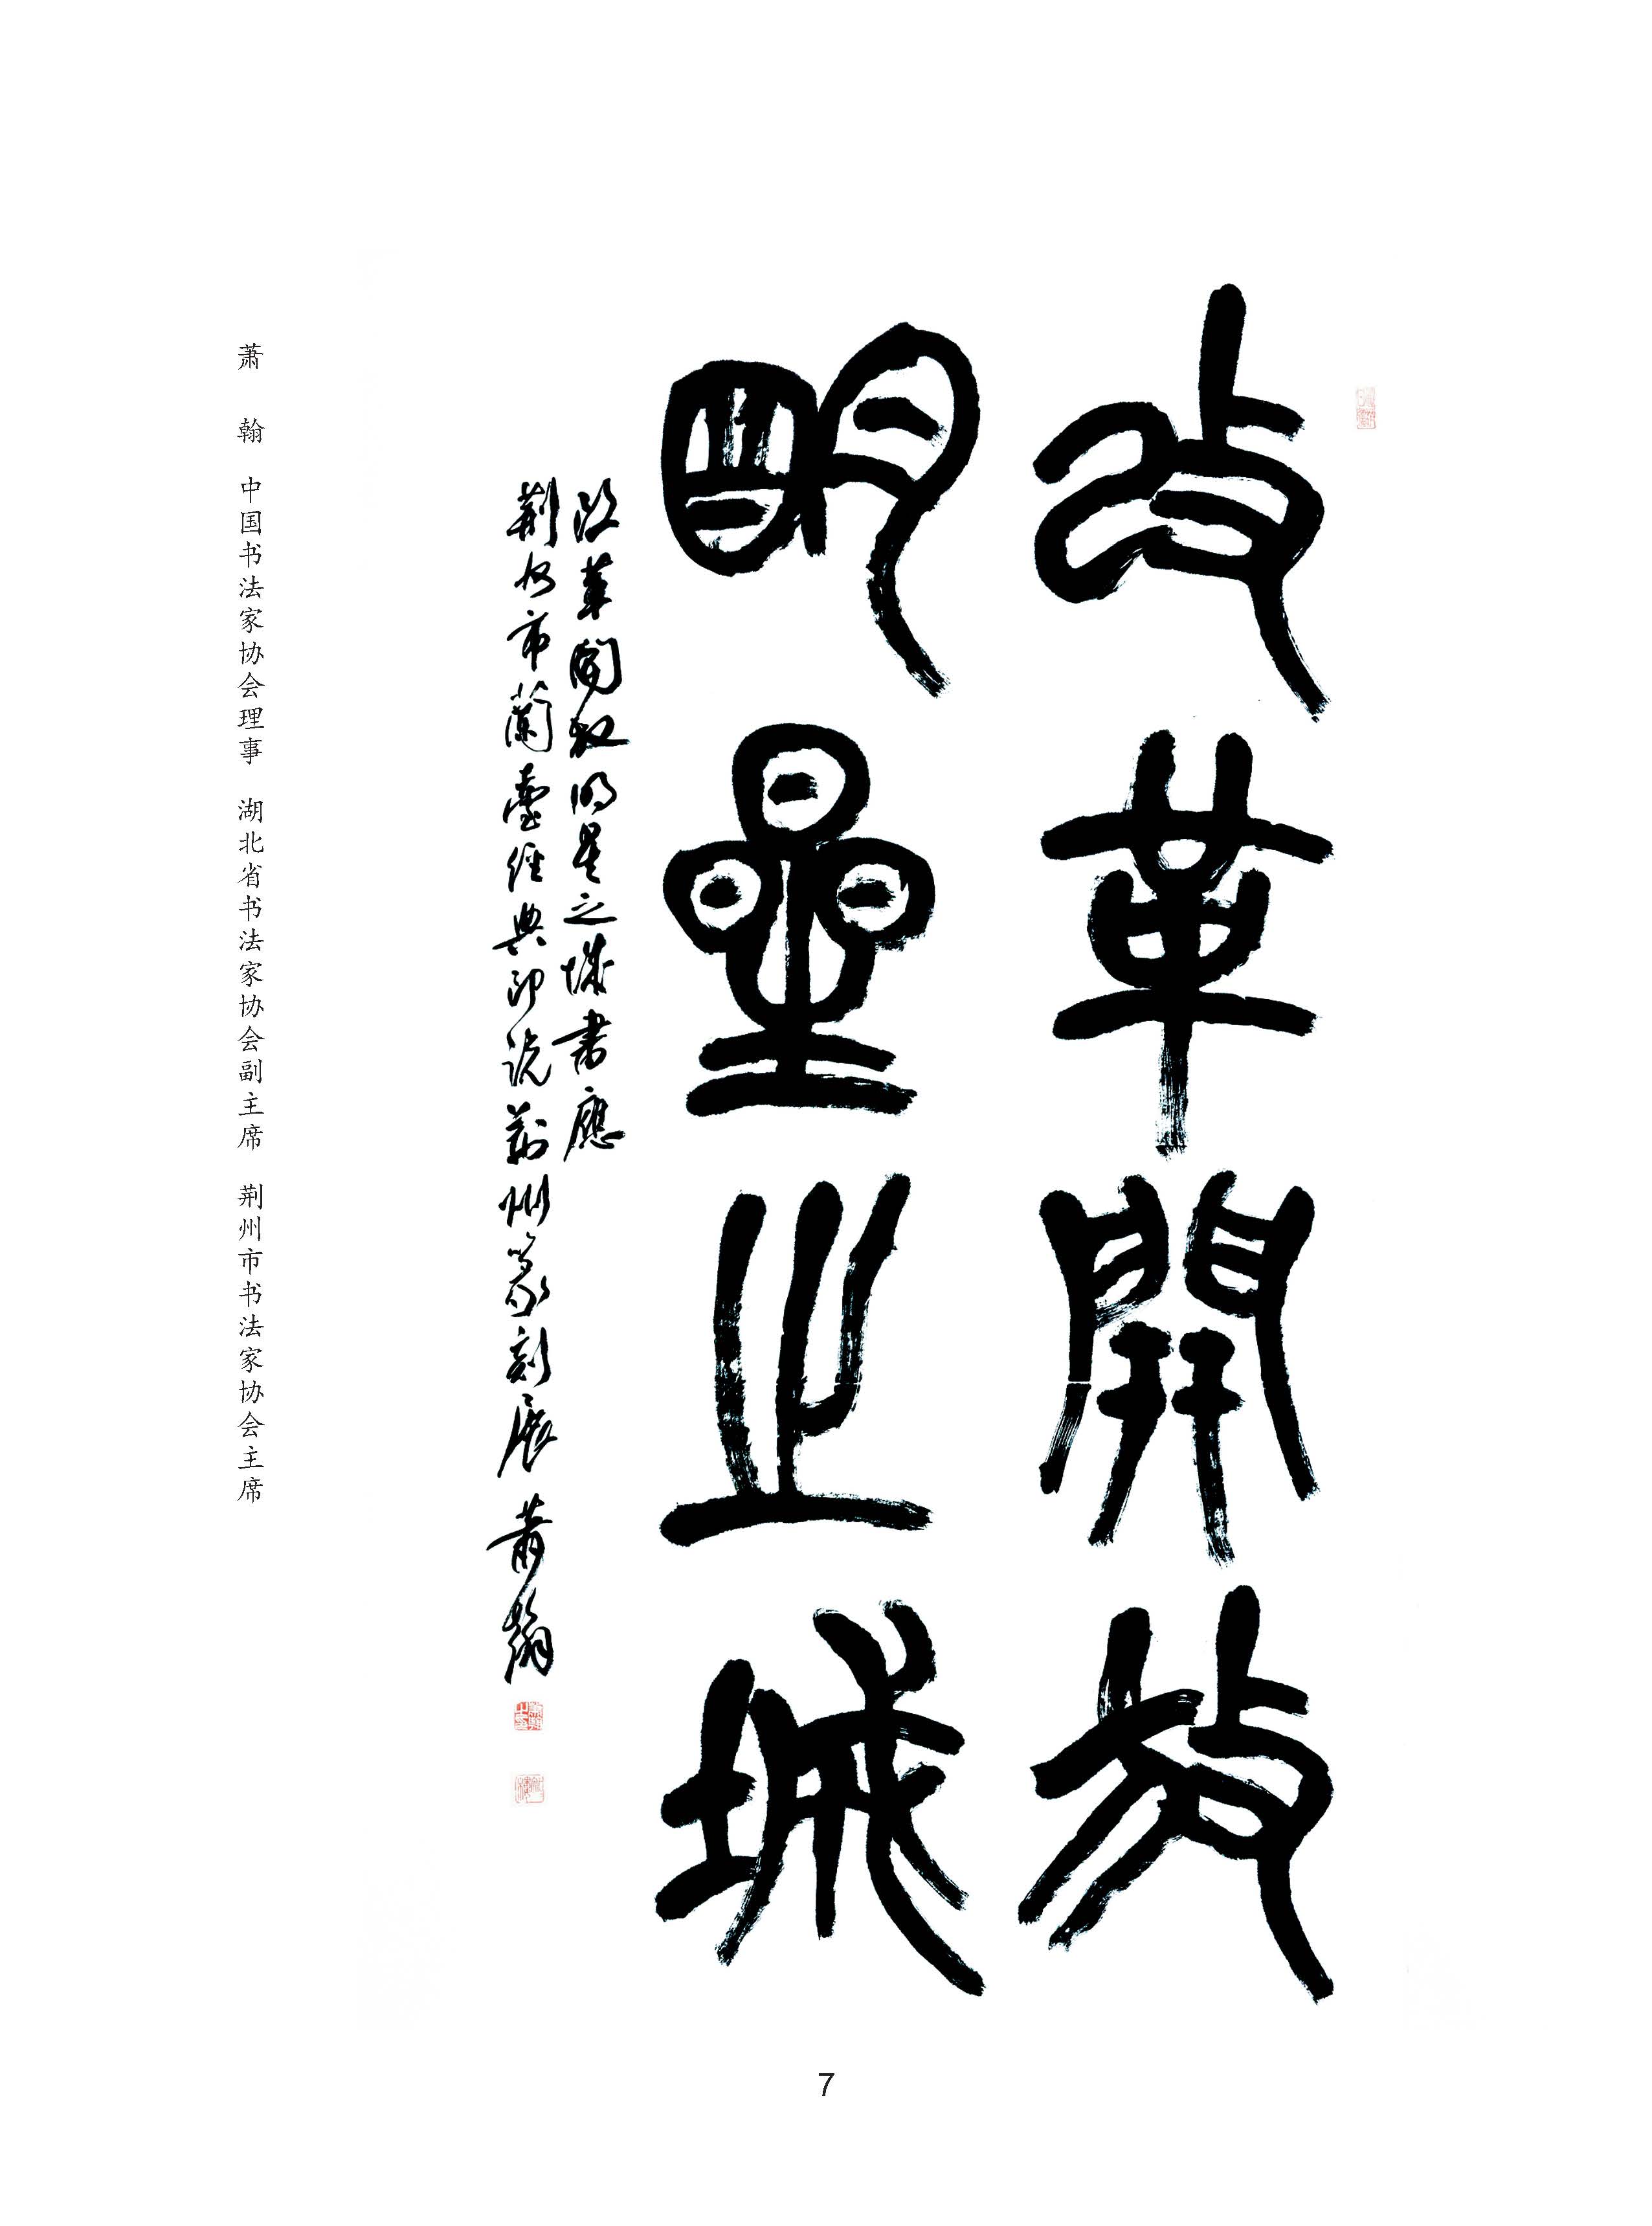 改革開放
明星之城
改革開放明星之城書應
荆州市蘭臺經典印說荆州篆刻展 萧翰
萧 翰 中国书法家协会理事 湖北省书法家协会副主席 荆州市书法家协会主席
7